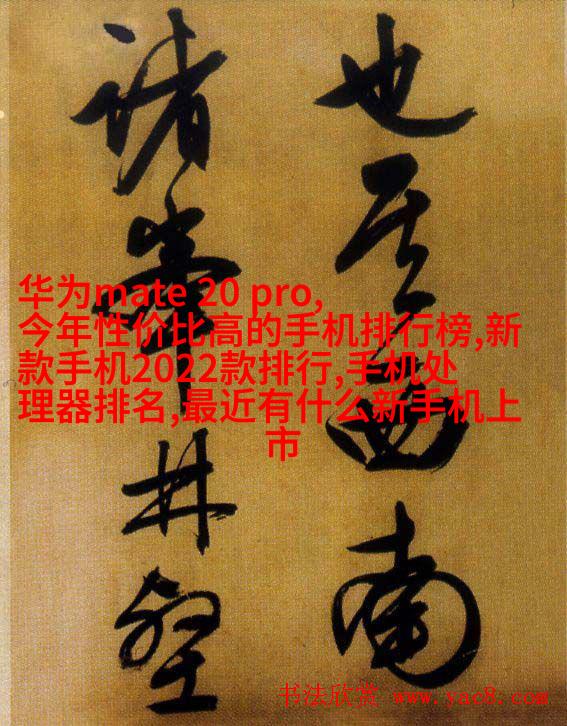 也其西南
諸峯林壑
华为mate 20 pro,
今年性价比高的手机排行榜,新
款手机2022款排行,手机处
理器排名,最近有什么新手机上
市
书法欣赏 www.yac8.com